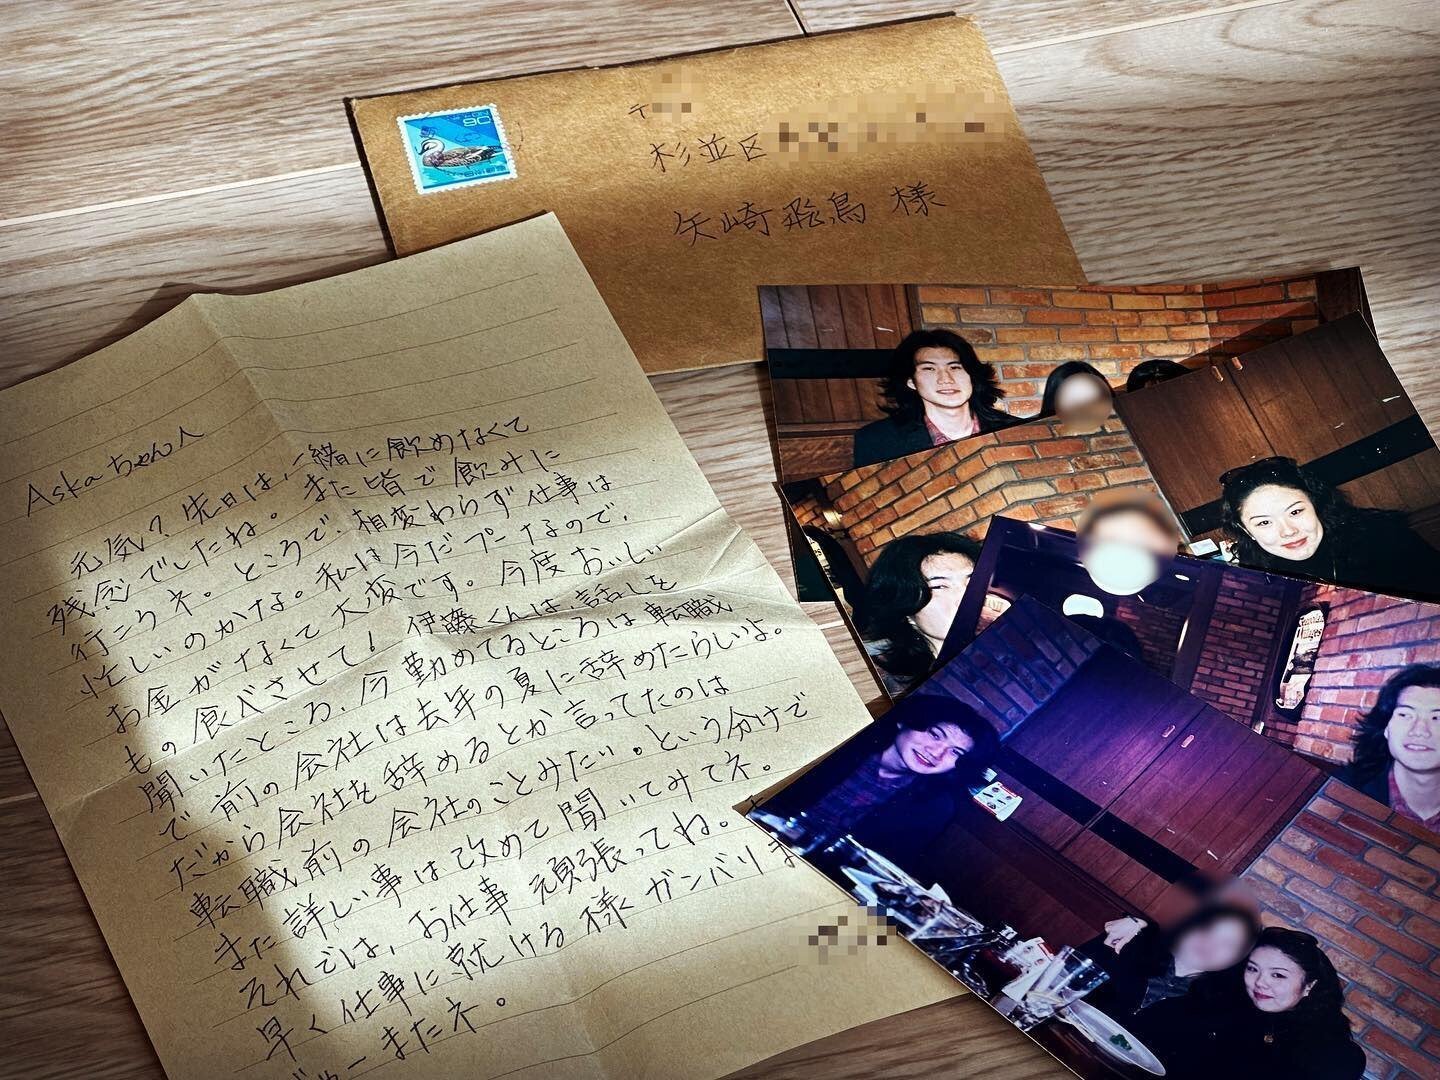 90
〒
杉並区
矢崎飛鳥 様
Askaちゃん人
元気?先日は、一緒に飲めなくて
残念でしたね。また皆で飲みに
行こうネ。ところで、相変わらず仕事は
忙しいのかな。私は今だプーなので、
お金がなくて大変です。今度おいしい
もの食べさせて!伊藤くんは、話しを
聞いたところ、今勤めてるところは転職
で前の会社は去年の夏に辞めたらしいよ。
だから会社を辞めるとか言ってたのは
転職前の会社のことみたい。という分けで
また詳しい事は改めて聞いてみてネ。
それでは、お仕事頑張ってね。
早く仕事に就ける様ガンバリま
またネ。